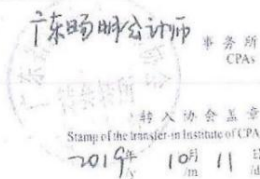 广东旸明会计师 事务所
CPAs
转入协会盖章
Stamp of the transfer-in Institute of CPA
2019年 10月 11日
/y /m /d